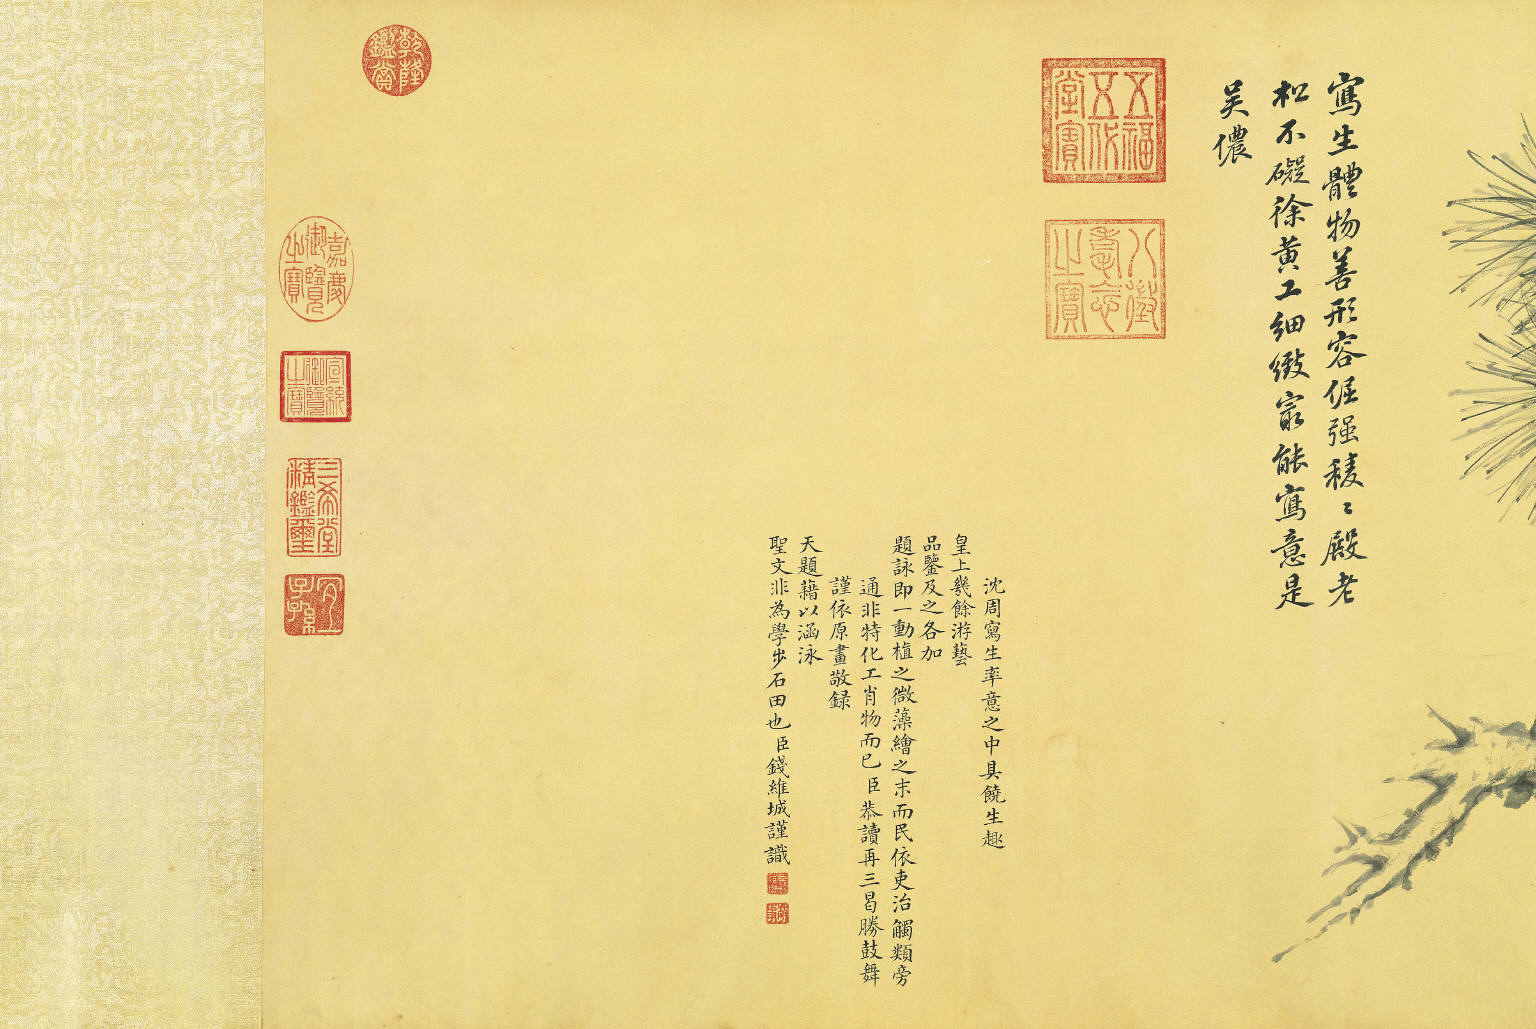 寫生體物善形容倔强稜〻殿老
松不礙徐黃工細緻㝡能寫意是
吴儂
五福五代堂寶
八徵耄念之寶
沈周寫生率意之中具饒生趣
皇上幾餘游藝
品鑒及之各加
題詠即一動植之微藻繪之末而民依吏治觸類旁
通非特化工肖物而已臣恭讀再三曷勝鼓舞
謹依原畫敬録
天題藉以涵泳
聖文非為學步石田也臣錢維城謹識
乾隆鑑賞
嘉慶御覽之寶
宣統御覽之寶
三希堂精鑑璽
宜子孫